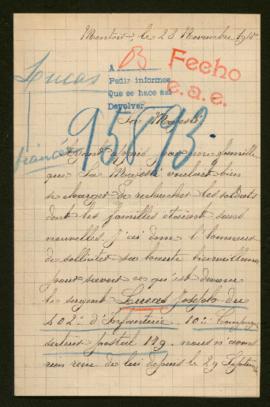 Montoir, le 23 Novembre 1915
Lucas
A
B
Fecho
e.a.e.
Pedir informes
Que se hace así
Devolver
Sa Majesté
95893
francés
Ayant appris par une famille
que Sa Majesté voulait bien
se charger de rechercher les soldats
dont les familles étaient sans
nouvelles j'ai donc l'honneur
de solliciter sa bonté bienveillante
pour savoir ce qu'est devenu
le sergent Lucas Joseph du
402e d'Infanterie 10e Compagnie
secteur postal 129. nous n'avons
rien reçu de lui depuis le 29 Septembre